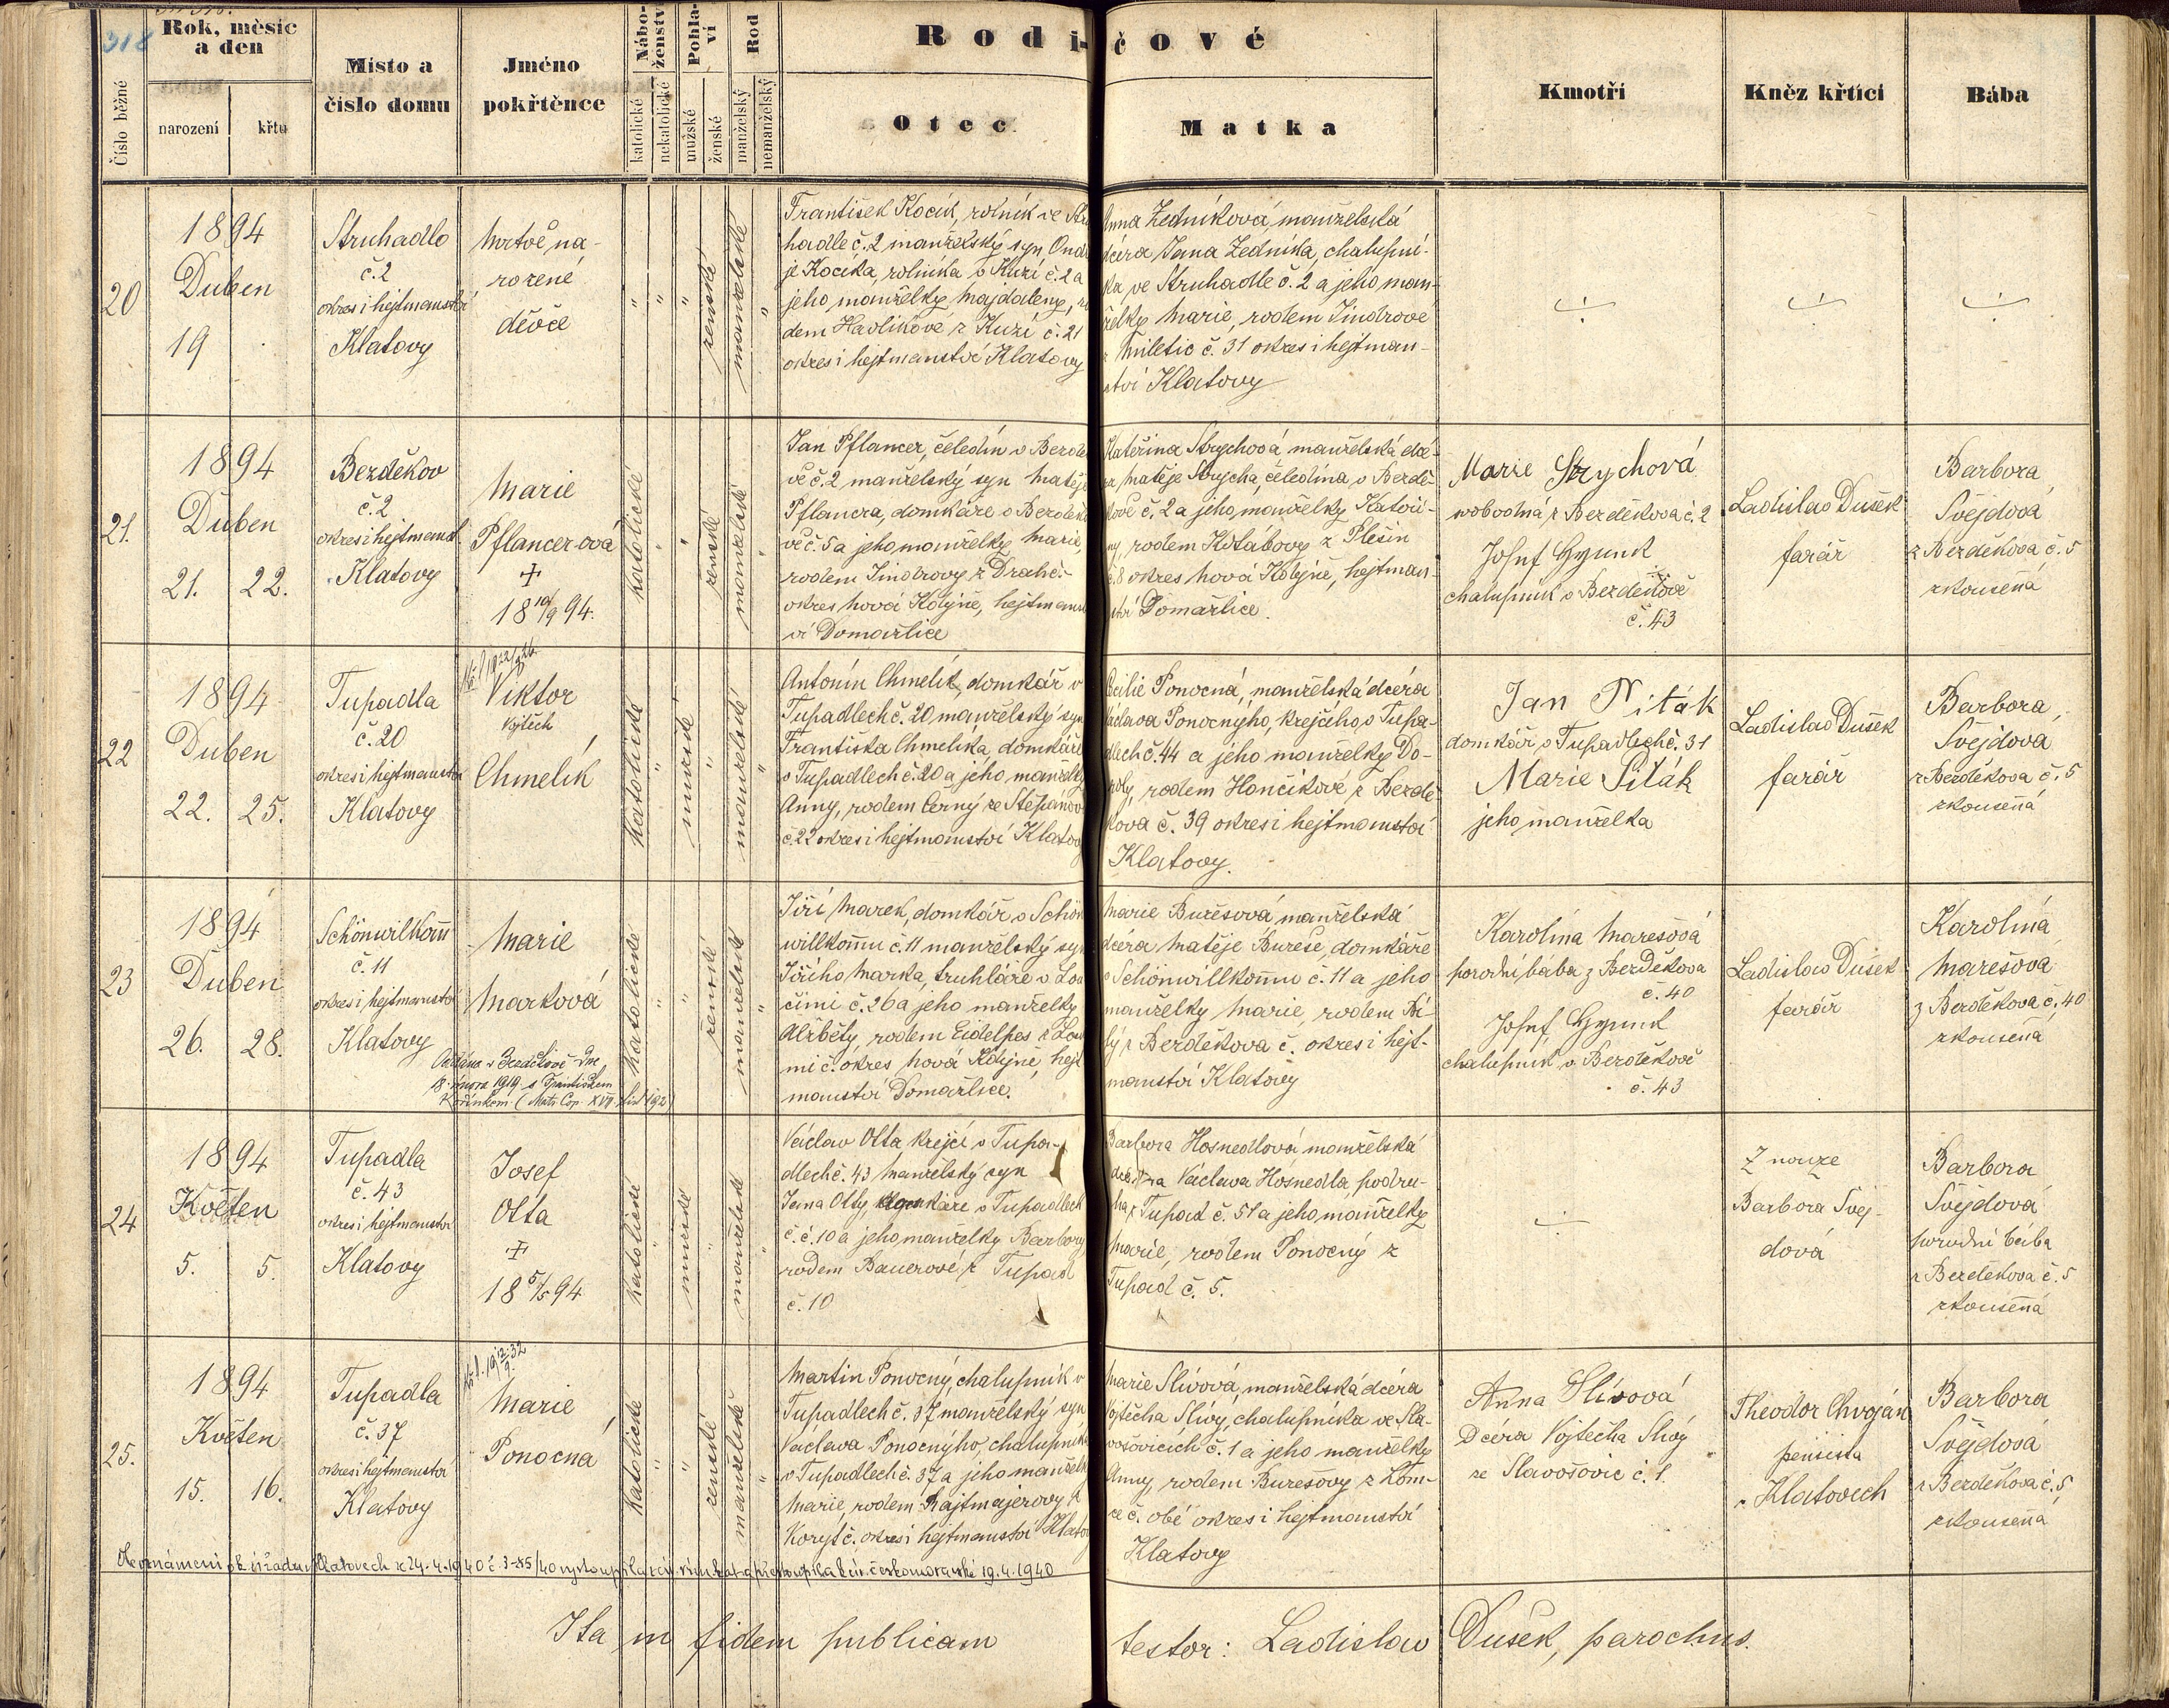 318
Číslo běžné
Rok, měsíc
a den
narození
křtu
Místo a
číslo domu
Jméno
pokřtěnce
Nábo-
ženství
katolické
nekatolické
Pohla-
ví
mužské
ženské
Rod
manželský
nemanželský
Rodi-čové
Otec
Matka
Kmotří
Kněz křtící
Bába
20
1894
Duben
19
Struhadlo
č. 2
okres i hejtmanství
Klatovy
mrtvě na-
rozené
děvče
" " "
ženské
manželské
"
František Kocík, rolník ve Stru
hadle č. 2 manželský syn Ondř
je Kocíka, rolníka v Kuzí č. 2 a
jeho manželky Majdaleny, ro
dem Havlíkové z Kuzí č. 21
okres i hejtmanství Klatovy
Anna Zedníková, manželská
dcéra Jana Zedníka, chalupní-
ka ve Struhadle č. 2 a jeho man-
želky Marie, rodem Jindrové
z Miletic č. 31 okres i hejtman-
ství Klatovy
÷
÷
÷
21.
1894
Duben
21. 22.
Bezděkov
č. 2
okres i hejtmanst.
Klatovy
Marie
Pflancer-ová
+
18 10/9 94.
katolické
" "
ženské
manželské
"
Jan Pflancer, čeledín v Bezdě
vě č. 2 manželský syn Matěje
Pflancra, domkáře v Bezděk
vě č. 5 a jeho manželky Marie,
rodem Jindrovy z Drahč.-
okres Nová Kdyně, hejtmanst
ví Domažlice
Kateřina Strychová, manželská dcé-
ra Matěje Strycha, čeledína v Bezdě-
kově č. 2 a jeho manželky Kateři-
ny, rodem Kotábovy z Plešin
č. 8 okres Nová Kdyně, hejtman-
ství Domažlice.
Marie Strychová
svobodná z Bezděkova č. 2
Josef
chalupník v Bezděkově
č. 43
Ladislav Dušek
farář
Barbora
Švejdová
z Bezděkova č. 5
zkoušená
22
1894
Duben
22. 25.
Tupadla
č. 20
okres i hejtmanstv
Klatovy
Viktor
Vojtěch
Chmelík
Katolické
"
mužské
"
manželské
"
Antonín Chmelík, domkář v
Tupadlech č. 20, manželský syn
Františka Chmelíka, domkáře
v Tupadlech č. 20 a jeho manželky
Anny, rodem Černý ze Štěpánov
č. 22 okres i hejtmanství Klatovy
Cecilie Ponocná, manželská dcéra
Václava Ponocnýho, krejčího v Tupa-
dlech č. 44 a jeho manželky Do-
roty, rodem Hančíkové z Bezdě-
kova č. 39 okres i hejtmanství
Klatovy.
Jan Piták
domkář v Tupadlech č. 31
Marie Piták
jeho manželka
Ladislav Dušek
farář
Barbora
Švejdová
z Bezděkova č. 5
zkoušená
23
1894
Duben
26. 28.
Schönwillkom̄
č. 11
okres i hejtmanství
Klatovy
Marie
Marková
Oddána v Bezděkově dne
18. února 1919 s Františkem
Kořínkem. (Matr. Cop. XVII. list 192)
Katolické
" "
ženské
manželské
"
Jiří Marek, domkář v Schön
willkom̄u č. 11 manželský syn
Jiřího Marka, truhláře v Lou
čimi č. 26 a jeho manželky
Alžběty, rodem Eidelpes z Lou
mi č. okres Nová Kdyně, hejt
manství Domažlice.
Marie Burešová manželská
dcéra Matěje Bureše, domkáře
v Schönwillkom̄u č. 11 a jeho
manželky Marie, rodem Bí-
lý z Bezděkova č. okres i hejt-
manství Klatovy
Karolína Marešová
porodní bába z Bezděkova
č. 40
Josef
chalupník v Bezděkově
č. 43
Ladislav Dušek
farář
Karolina
Marešová
z Bezděkova č. 40
zkoušená
24
1894
Květen
5. 5.
Tupadla
č. 43
okres i hejtmanství
Klatovy
Josef
Otta
+
18 5/5 94
Katolické
"
mužské
"
manželské
"
Václav Otta krejčí v Tupa-
dlech č. 43 manželský syn
Jana Otty, domkáře v Tupadlech
č. č. 10 a jeho manželky Barbory
rodem Bauerové z Tupad
č. 10
Barbora Hosnedlová manželská
dcéra Václava Hosnedla, podru-
ha z Tupad č. 51 a jeho manželky
Marie, rodem Ponocný z
Tupad č. 5.
÷
Z nouze
Barbora Švej-
dová
Barbora
Švejdová
porodní bába
z Bezděkova č. 5
zkoušená
25.
1894
Květen
15. 16.
Tupadla
č. 37
okres i hejtmanství
Klatovy
Marie
Ponocná
Katolické
" "
ženské
manželské
"
Martin Ponocný, chalupník v
Tupadlech č. 37 manželský syn
Václava Ponocnýho, chalupníka
v Tupadlech č. 37 a jeho manželk
Marie, rodem Rajtmajerovy z
Koryt č. okres i hejtmanství Klatov
Marie Slívová, manželská dcéra
Vojtěcha Slívy, chalupníka ve Sla-
vošovicích č. 1 a jeho manželky
Anny, rodem Buresovy z Lom-
ce č. obé okres i hejtmanství
Klatovy
Anna Slívová
Dcéra Vojtěcha Slívy
ze Slavošovic č. 1.
Theodor Chvoján
pensista
v Klatovech
Barbora
Švejdová
z Bezděkova č. 5
zkoušená
Dle oznámení ok. úřadu v Klatovech ze 24.4.1940 č. 3-85/40 vystoupila z cír. řím. kat. a přistoupila k cír. českomoravské 19.4.1940
Ita in fidem publicam testor: Ladislav Dušek, parochus.